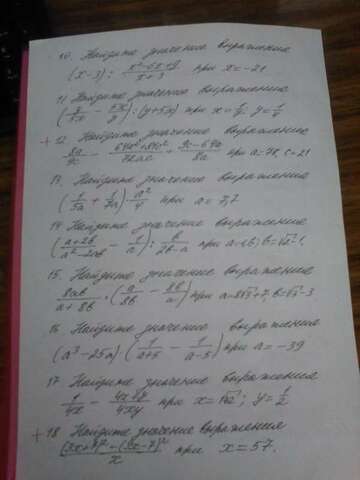 10. Найдите значение выражения
(x-3) : (x²-6x+9)/(x+3) при x = -21
11 Найдите значение выражения
при
+ 12. Найдите значение выражения
при a = 78, c = 21
13. Найдите значение выражения
(1/5a + 1/7a) · a²/4 при a = 7,7
14 Найдите значение выражения
при
15. Найдите значение выражения
8ab/(a+8b) · (a/8b - 8b/a) при a = 8√2+7, b = √2-3
16 Найдите значение выражения
(a³ - 25a) (1/(a+5) - 1/(a-5)) при a = -39
17 Найдите значение выражения
1/4x - (4x+y)/4xy при x = √12; y = 1/2
+ 18 Найдите значение выражения
при x = 57.